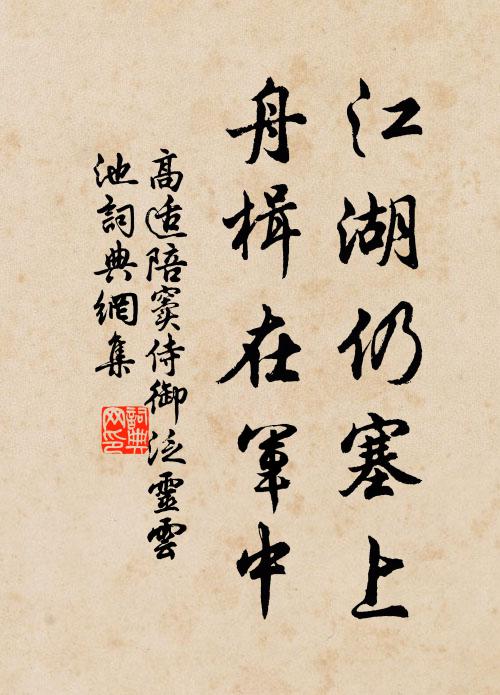 江湖仍塞上
舟楫在軍中
高适陪窦侍御泛靈雲
池詞典網集
詞典网印